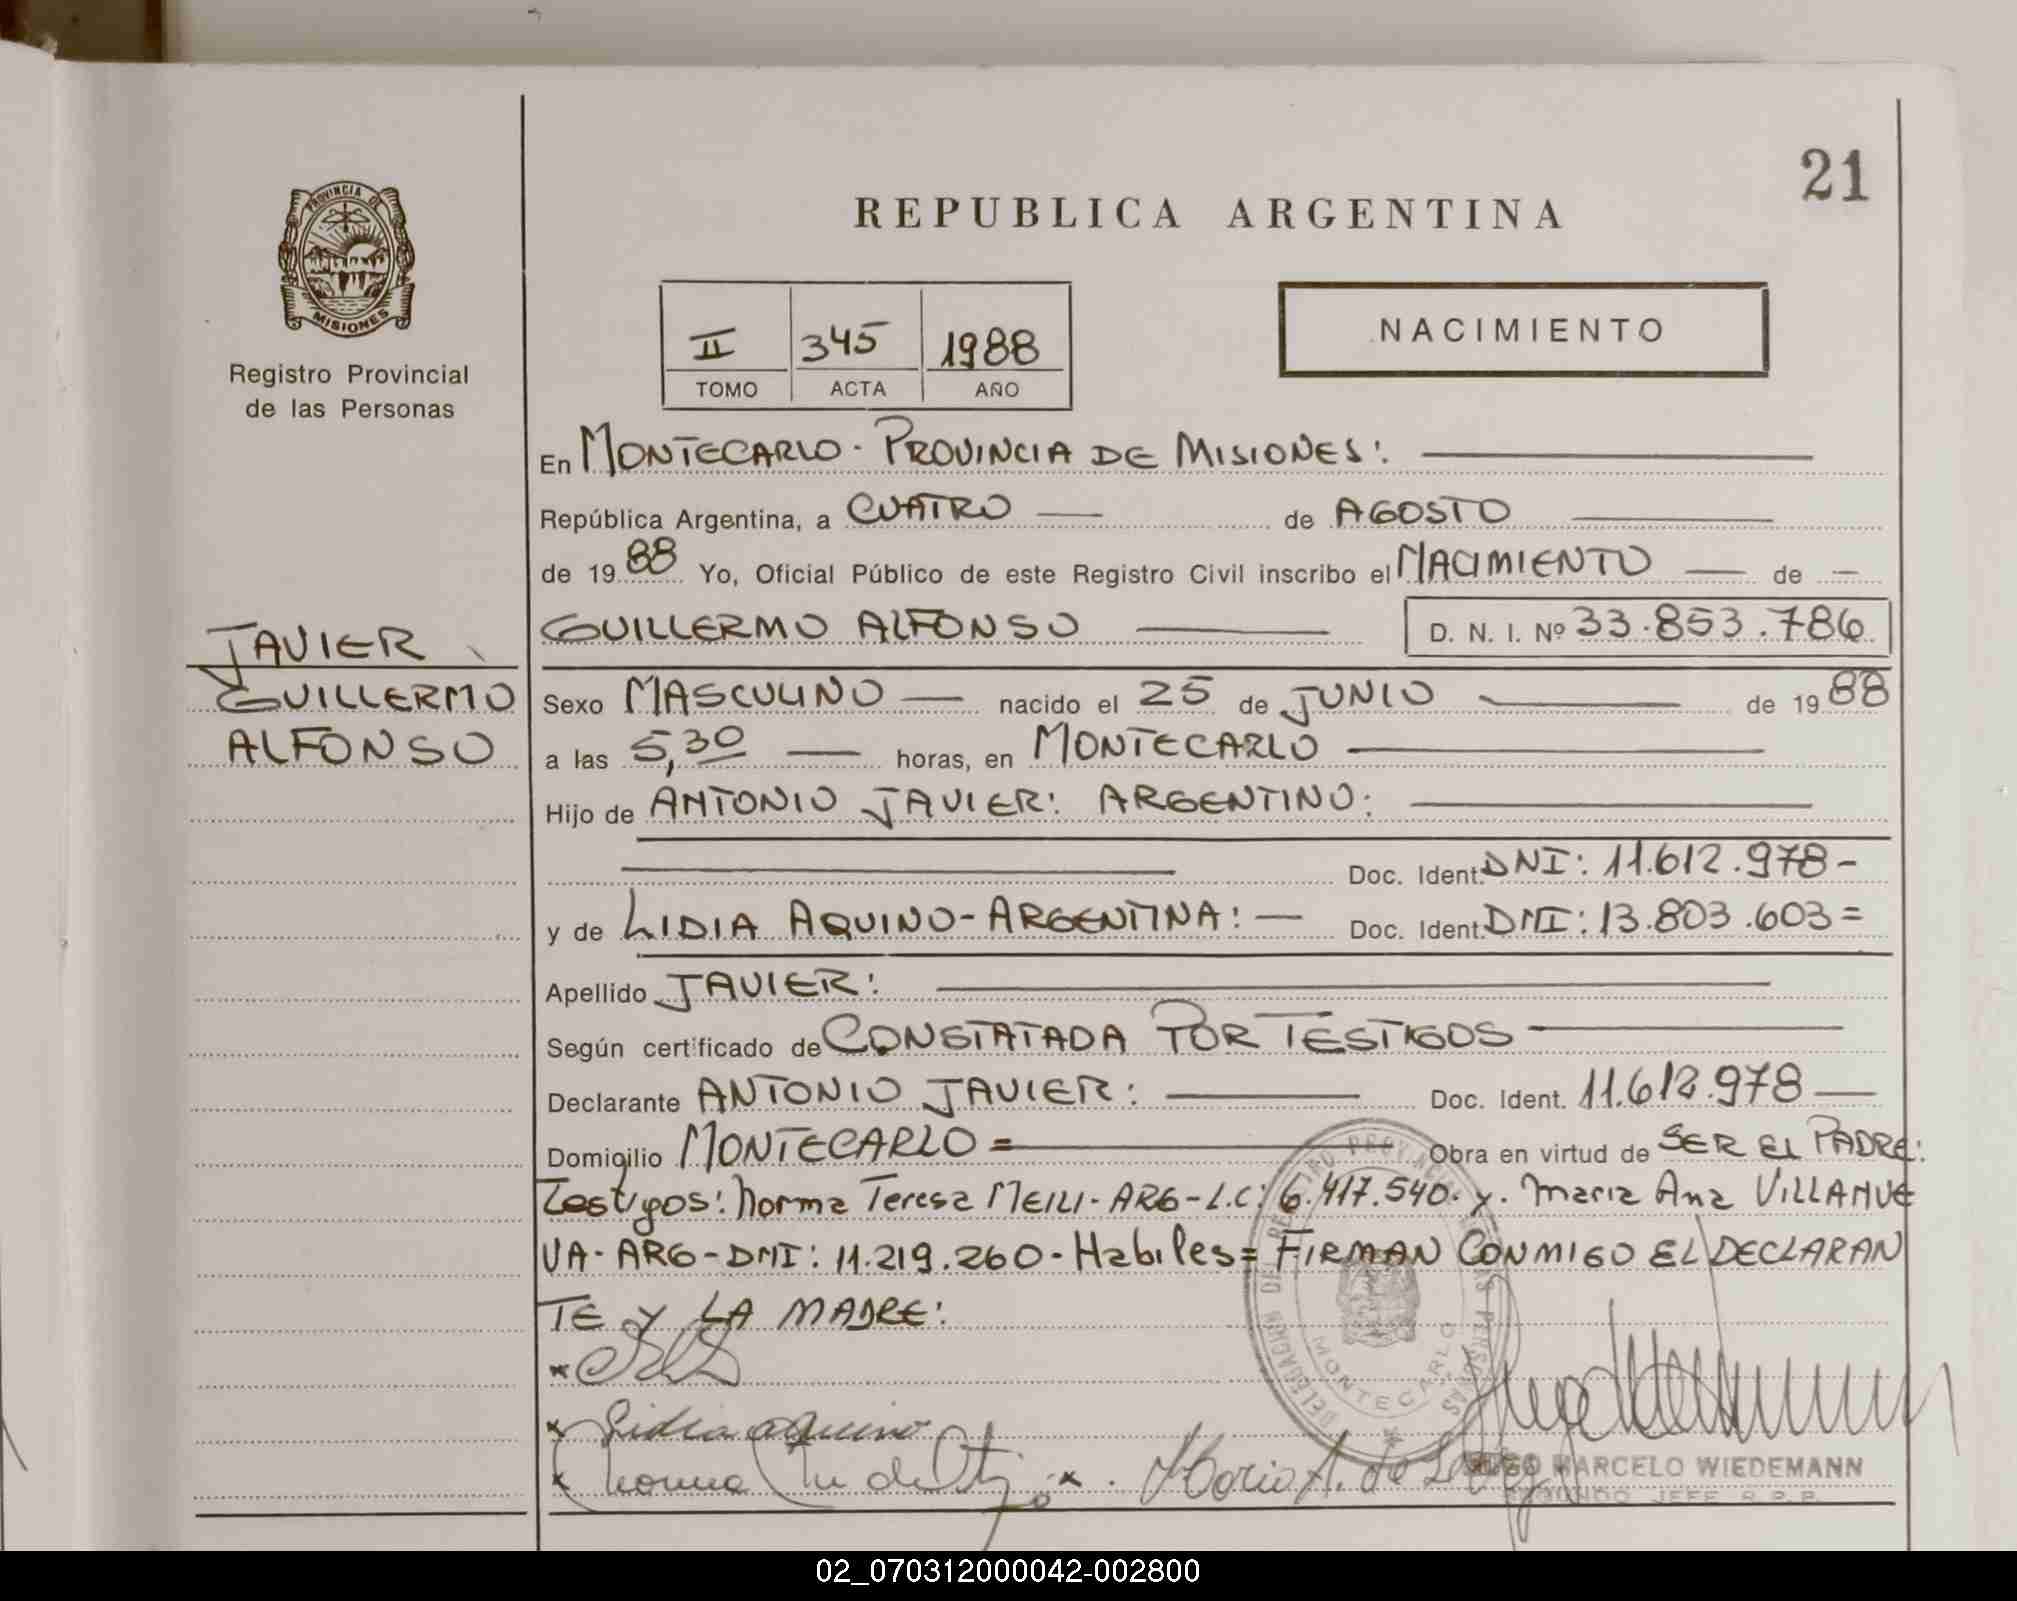 21
REPUBLICA ARGENTINA
PROVINCIA DE
MISIONES
Registro Provincial
de las Personas
II 345 1988
TOMO ACTA AÑO
NACIMIENTO
En MONTECARLO - PROVINCIA DE MISIONES:
República Argentina, a CUATRO de AGOSTO
de 19 88 Yo, Oficial Público de este Registro Civil inscribo el NACIMIENTO de
GUILLERMO ALFONSO D. N. I. Nº 33.853.786
JAVIER
GUILLERMO
ALFONSO
Sexo MASCULINO nacido el 25 de JUNIO de 19 88
a las 5,30 horas, en MONTECARLO
Hijo de ANTONIO JAVIER: ARGENTINO:
Doc. Ident. DNI: 11.612.978 -
y de LIDIA AQUINO - ARGENTINA: Doc. Ident. DNI: 13.803.603 =
Apellido JAVIER:
Según certificado de CONSTATADA POR TESTIGOS
Declarante ANTONIO JAVIER: Doc. Ident. 11.612.978
Domicilio MONTECARLO = Obra en virtud de SER EL PADRE:
Testigos: Norma Teresa MEILI - ARG - L.C: 6.417.540. y. Maria Ana VILLANUE
VA - ARG - DNI: 11.219.260 - Habiles = FIRMAN CONMIGO EL DECLARAN
TE Y LA MADRE:
DELEGACION DEL REGISTRO PROVINCIAL DE LAS PERSONAS
MONTECARLO
Lidia aquino
Norma
Maria A. de
HUGO MARCELO WIEDEMANN
SEGUNDO JEFE R.P.P.
02_070312000042-002800